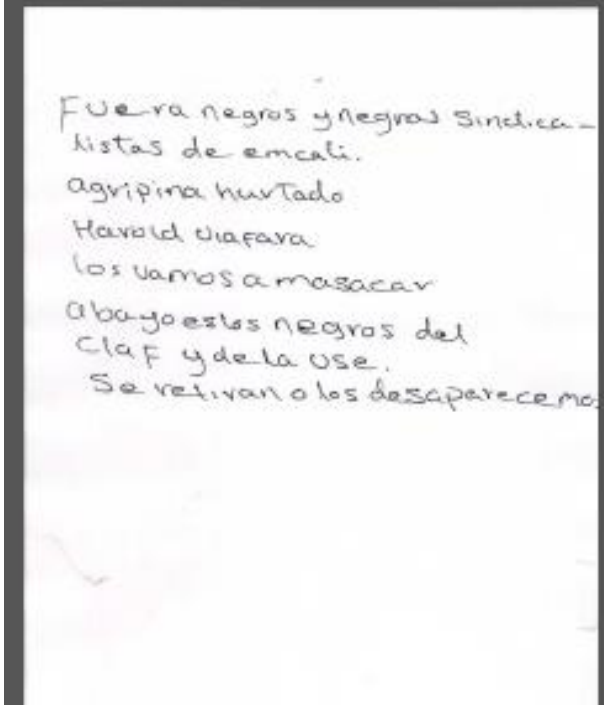 Fuera negros y negras Sindica-
listas de emcali.
agripina hurtado
Harold viafara
los vamos a masacar
abayo estos negros del
Claf y de la use.
Se retiran o los desaparecemos